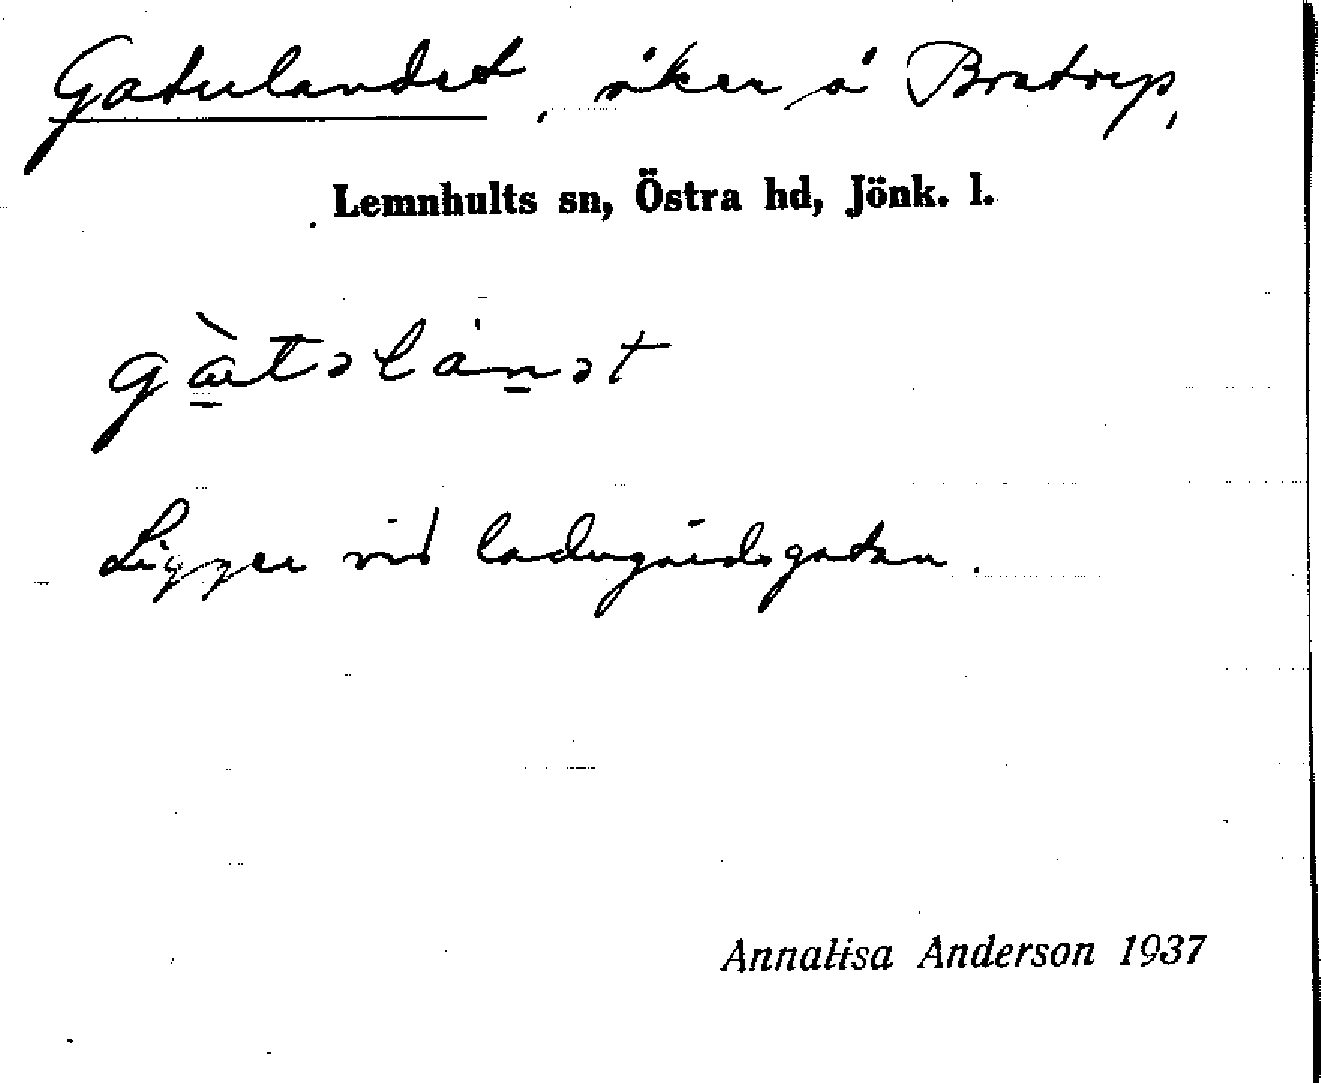 Gatulandet, åker å Bratryp,
Lemnhults sn, Östra hd, Jönk. l.
gàtəlánət
Ligger vid ladugårdsgatan.
Annalisa Anderson 1937